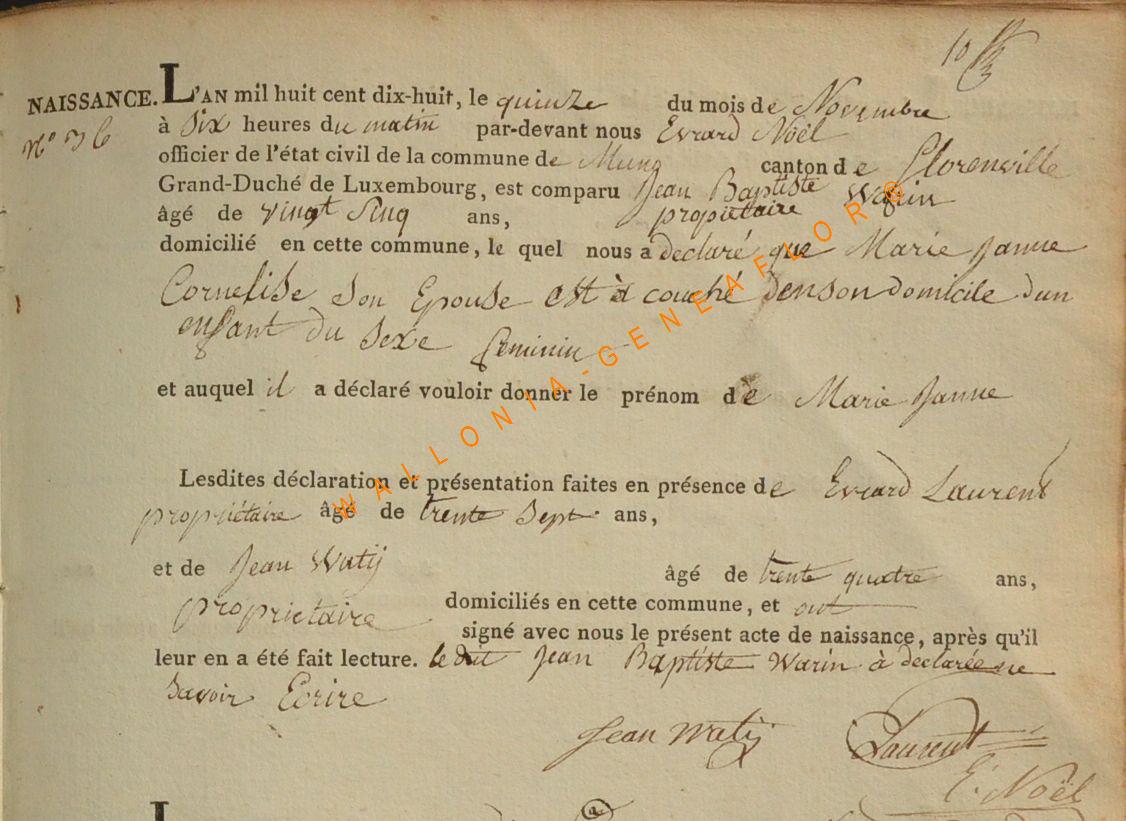 NAISSANCE. L'AN mil huit cent dix-huit, le quinze du mois de Novembre
N° 36
à Six heures du matin par-devant nous Evrard Noël
officier de l'état civil de la commune de Muno canton de florenville
Grand-Duché de Luxembourg, est comparu Jean Baptiste Warin
âgé de vingt Sinq ans, propriétaire
domicilié en cette commune, le quel nous a declaré que Marie Janne
Cornelise son Epouse est à couché densondomicile dun
enfant du Sexe feminin
et auquel il a déclaré vouloir donner le prénom de Marie Janne
Lesdites déclaration et présentation faites en présence de Evrard Laurent
propriétaire âgé de trente Sept ans,
et de Jean Watij âgé de trente quatre ans,
proprietaire domiciliés en cette commune, et ont
signé avec nous le présent acte de naissance, après qu'il
leur en a été fait lecture. le dit Jean Baptiste Warin à declarée ne
Savoir Ecrire
Jean Watij Laurent
E. Noël
WALLONIA-GENEAFLORG